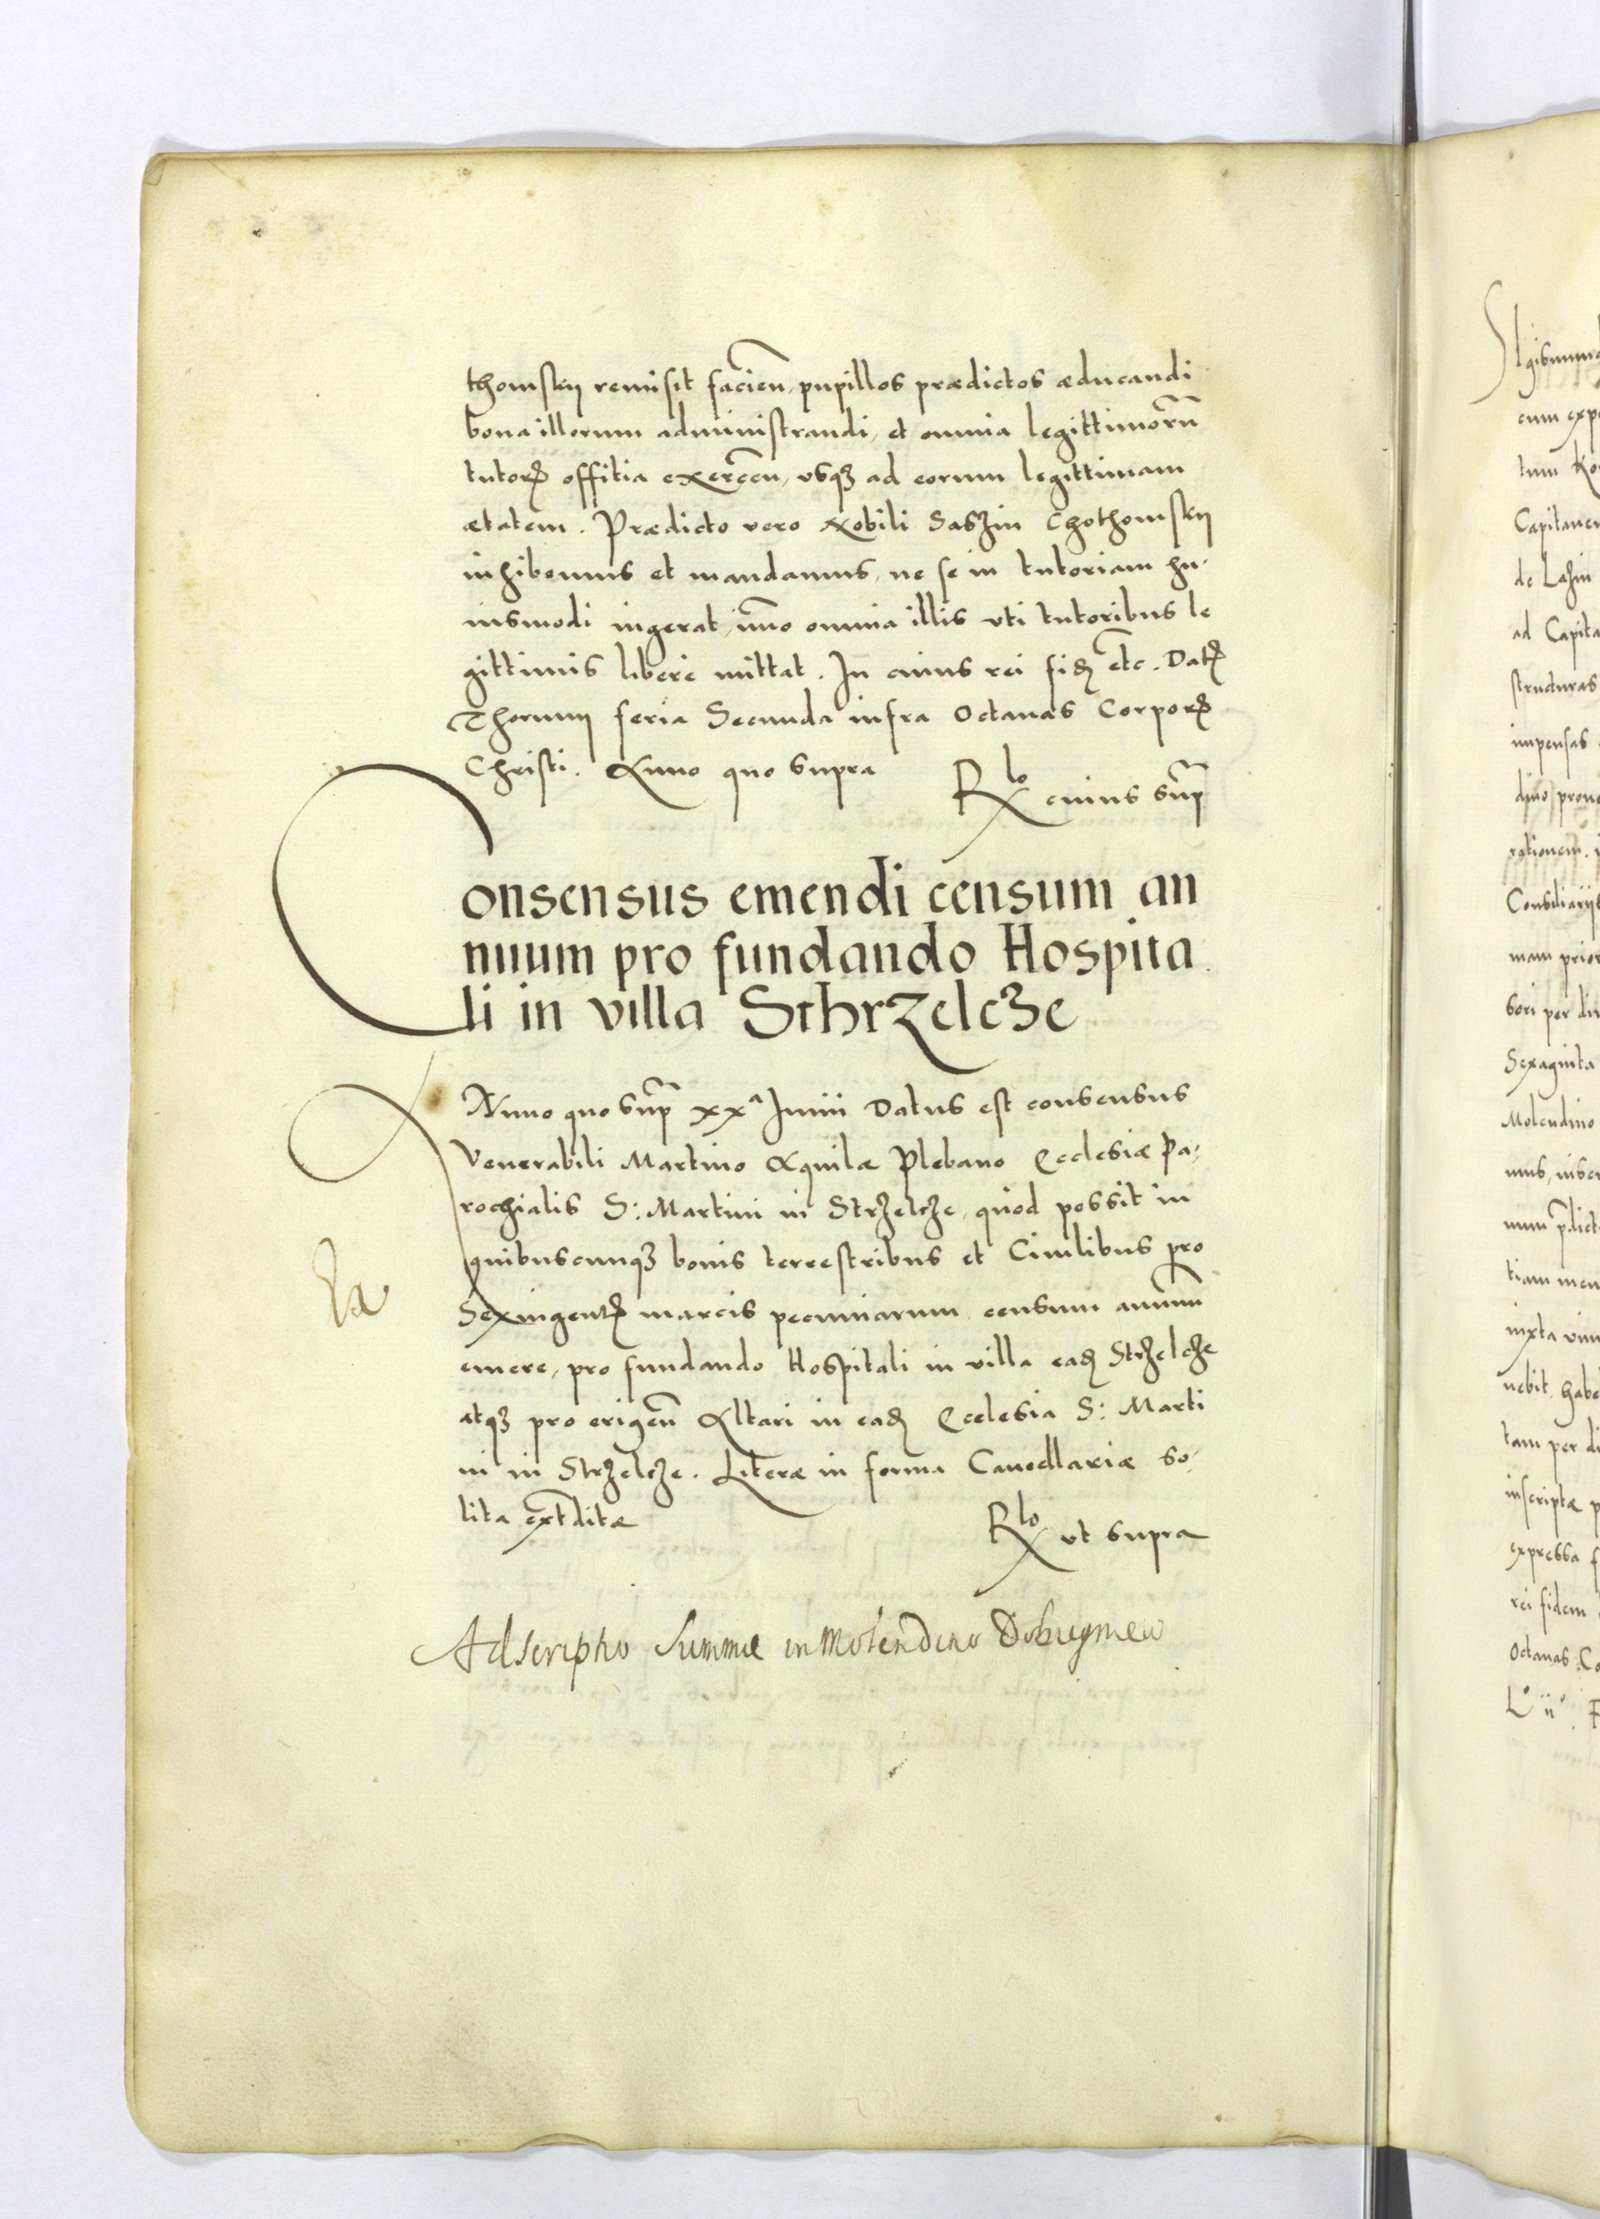 thomskij remisit facien, pupillos prædictos æducandi
bona illorum administrandi, et omnia legittimorũ
tutorꝝ offitia exercen, usqꝫ ad eorum legittimam
ætatem. Prædicto vero Nobili Saszin Chothomskij
inhibemus et mandamus, ne se in tutoriam hu-
iusmodi ingerat, imo omnia illis uti tutoribus le
gittimis libere mittat. In cuius rei fidꝫ etc. Datꝭ
Thorunij feria Secunda infra Octauas Corporꝭ
Christi. Anno quo supra
Rlo cuius sup
Consensus emendi censum an
nuum pro fundando Hospita
li in villa Sthrzelcze
Anno quo sup xxa Junij Datus est consensus
Venerabili Martino Aquilæ Plebano Ecclesiæ Pa-
rochialis S: Martini in Strzelcze, quod possit in
quibuscunqꝫ bonis terrestribus et Ciuilibus pro
Sexingentꝭ marcis pecuniarum censum annuum
emere, pro fundando Hospitali in villa eadꝫ Strzelcze
atqꝫ pro erigen Altari in eadꝫ Ecclesia S: Marti
ni in Strzelcze. Literæ in forma Cancellariæ so-
lita extraditæ
Rlo ut supra
Adscriptio Summæ in Molendino
Sigismund
cum exp
tum
Capitaneu
de Lasin
ad Capita
structuras
impensas
rationem.
Consiliarijs
mam prior
sori per di
Sexaginta
Molendino
num p̄dict
tiam
iuxta
uebit, habe
tam per di
inscriptæ p
expressa f
rei fidem
Octauas Co